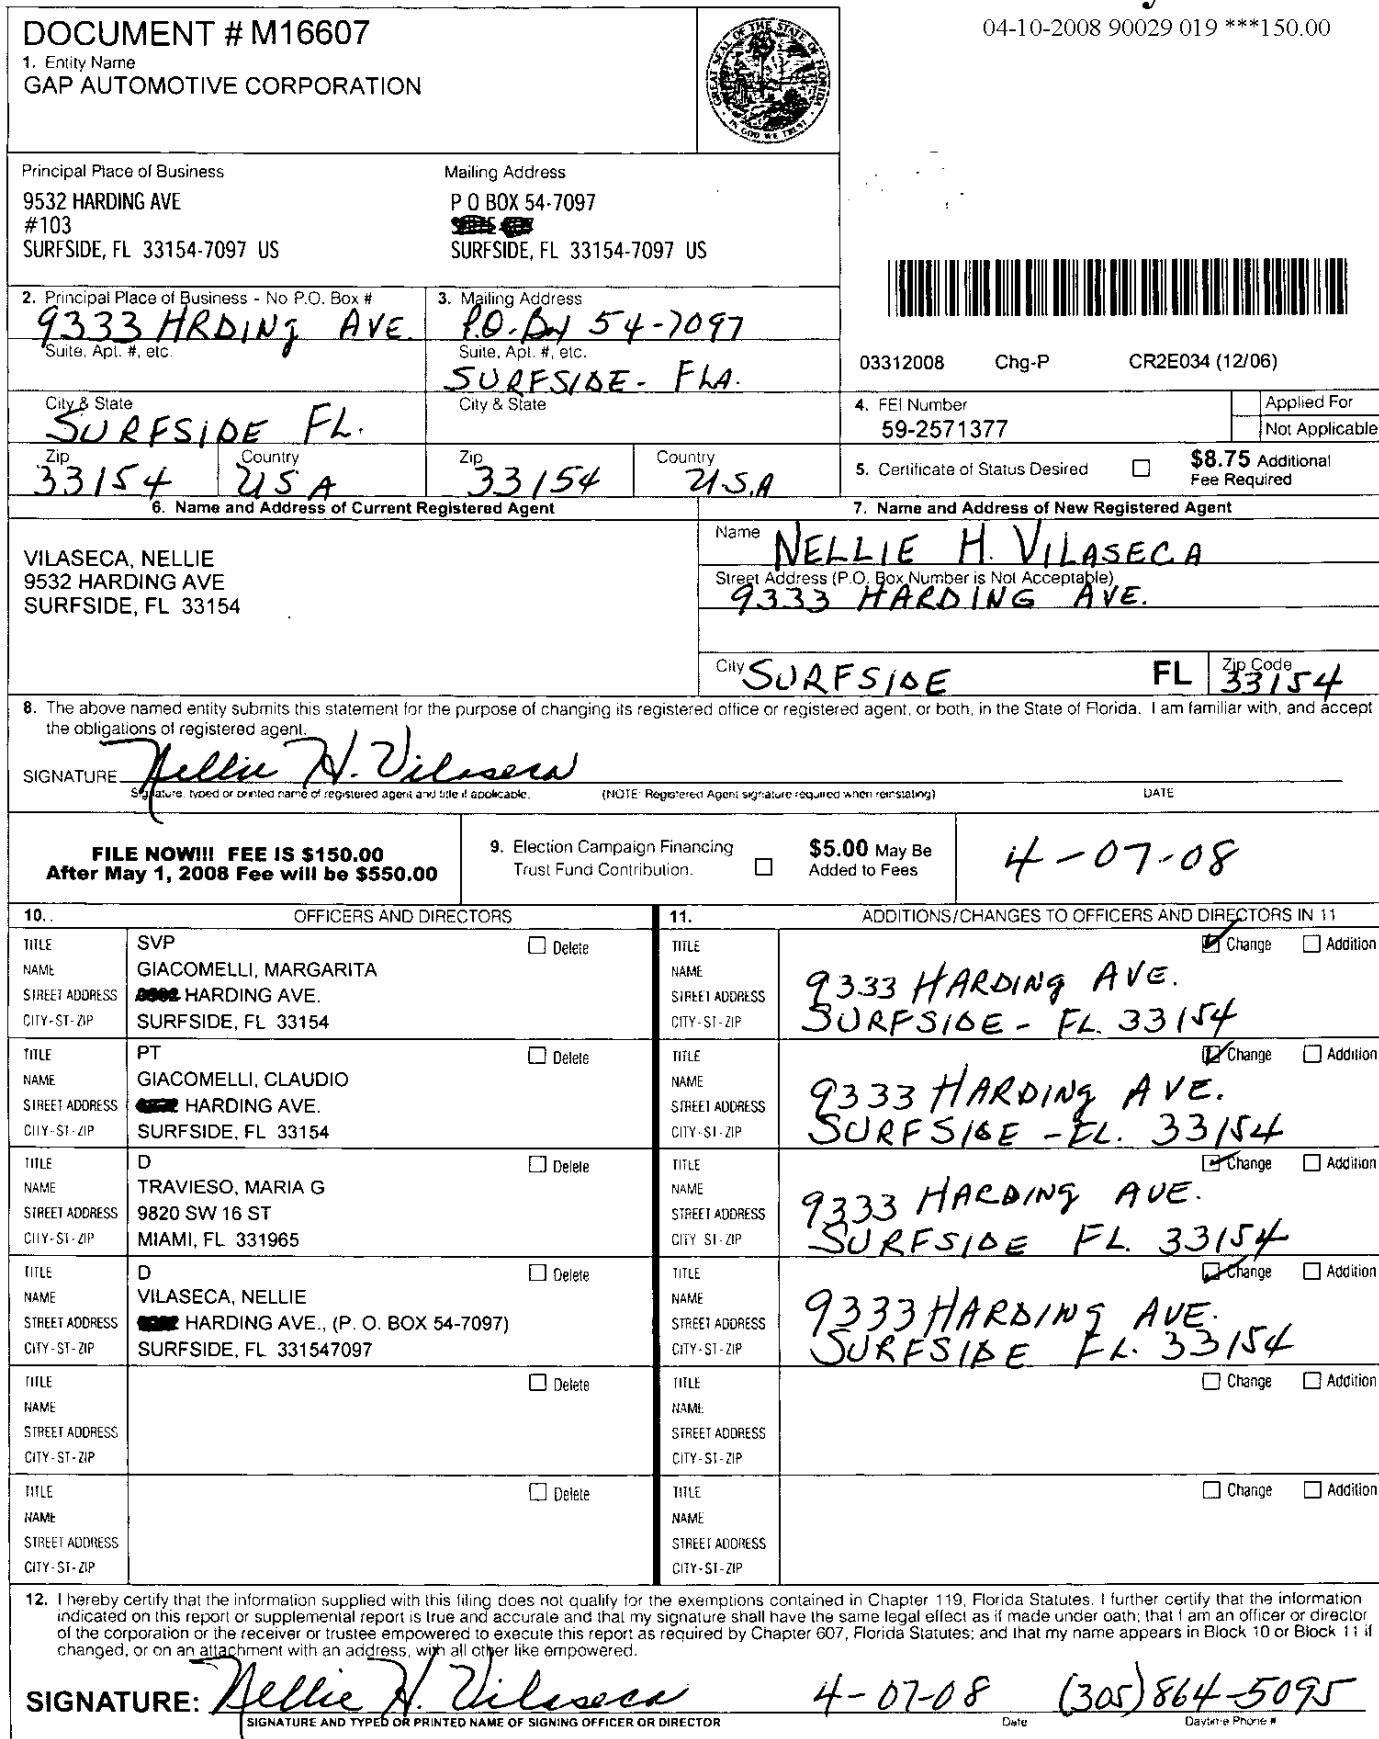 04-10-2008 90029 019 ***150.00
DOCUMENT # M16607
1. Entity Name
GAP AUTOMOTIVE CORPORATION
GREAT SEAL OF THE STATE OF FLORIDA
IN GOD WE TRUST
Principal Place of Business
9532 HARDING AVE
#103
SURFSIDE, FL 33154-7097 US
Mailing Address
P O BOX 54-7097
SURFSIDE, FL 33154-7097 US
2. Principal Place of Business - No P.O. Box #
9333 HRDING AVE.
Suite, Apt. #, etc.
City & State
SURFSIDE FL.
Zip
33154
Country
USA
3. Mailing Address
P.O. Box 54-7097
Suite, Apt. #, etc.
SURFSIDE - FLA.
City & State
Zip
33154
Country
U.S.A
03312008 Chg-P CR2E034 (12/06)
4. FEI Number
59-2571377
Applied For
Not Applicable
5. Certificate of Status Desired
$8.75 Additional
Fee Required
6. Name and Address of Current Registered Agent
VILASECA, NELLIE
9532 HARDING AVE
SURFSIDE, FL 33154
7. Name and Address of New Registered Agent
Name NELLIE H. VILASECA
Street Address (P.O. Box Number is Not Acceptable)
9333 HARDING AVE.
City SURFSIDE FL Zip Code 33154
8. The above named entity submits this statement for the purpose of changing its registered office or registered agent, or both, in the State of Florida. I am familiar with, and accept
the obligations of registered agent.
SIGNATURE Nellie H. Vilaseca
Signature, typed or printed name of registered agent and title if applicable. (NOTE: Registered Agent signature required when reinstating) DATE
FILE NOW!!! FEE IS $150.00
After May 1, 2008 Fee will be $550.00
9. Election Campaign Financing
Trust Fund Contribution.
$5.00 May Be
Added to Fees
4-07-08
10. OFFICERS AND DIRECTORS
11. ADDITIONS/CHANGES TO OFFICERS AND DIRECTORS IN 11
TITLE SVP Delete
NAME GIACOMELLI, MARGARITA
STREET ADDRESS HARDING AVE.
CITY-ST-ZIP SURFSIDE, FL 33154
TITLE Change Addition
NAME
STREET ADDRESS 9333 HARDING AVE.
CITY-ST-ZIP SURFSIDE - FL. 33154
TITLE PT Delete
NAME GIACOMELLI, CLAUDIO
STREET ADDRESS HARDING AVE.
CITY-ST-ZIP SURFSIDE, FL 33154
TITLE Change Addition
NAME
STREET ADDRESS 9333 HARDING AVE.
CITY-ST-ZIP SURFSIDE - FL. 33154
TITLE D Delete
NAME TRAVIESO, MARIA G
STREET ADDRESS 9820 SW 16 ST
CITY-ST-ZIP MIAMI, FL 331965
TITLE Change Addition
NAME
STREET ADDRESS 9333 HARDING AVE.
CITY-ST-ZIP SURFSIDE FL. 33154
TITLE D Delete
NAME VILASECA, NELLIE
STREET ADDRESS HARDING AVE., (P. O. BOX 54-7097)
CITY-ST-ZIP SURFSIDE, FL 331547097
TITLE Change Addition
NAME
STREET ADDRESS 9333 HARDING AVE.
CITY-ST-ZIP SURFSIDE FL. 33154
TITLE Delete
NAME
STREET ADDRESS
CITY-ST-ZIP
TITLE Change Addition
NAME
STREET ADDRESS
CITY-ST-ZIP
TITLE Delete
NAME
STREET ADDRESS
CITY-ST-ZIP
TITLE Change Addition
NAME
STREET ADDRESS
CITY-ST-ZIP
12. I hereby certify that the information supplied with this filing does not qualify for the exemptions contained in Chapter 119, Florida Statutes. I further certify that the information
indicated on this report or supplemental report is true and accurate and that my signature shall have the same legal effect as if made under oath; that I am an officer or director
of the corporation or the receiver or trustee empowered to execute this report as required by Chapter 607, Florida Statutes; and that my name appears in Block 10 or Block 11 if
changed, or on an attachment with an address, with all other like empowered.
SIGNATURE: Nellie H. Vilaseca 4-07-08 (305) 864-5095
SIGNATURE AND TYPED OR PRINTED NAME OF SIGNING OFFICER OR DIRECTOR Date Daytime Phone #